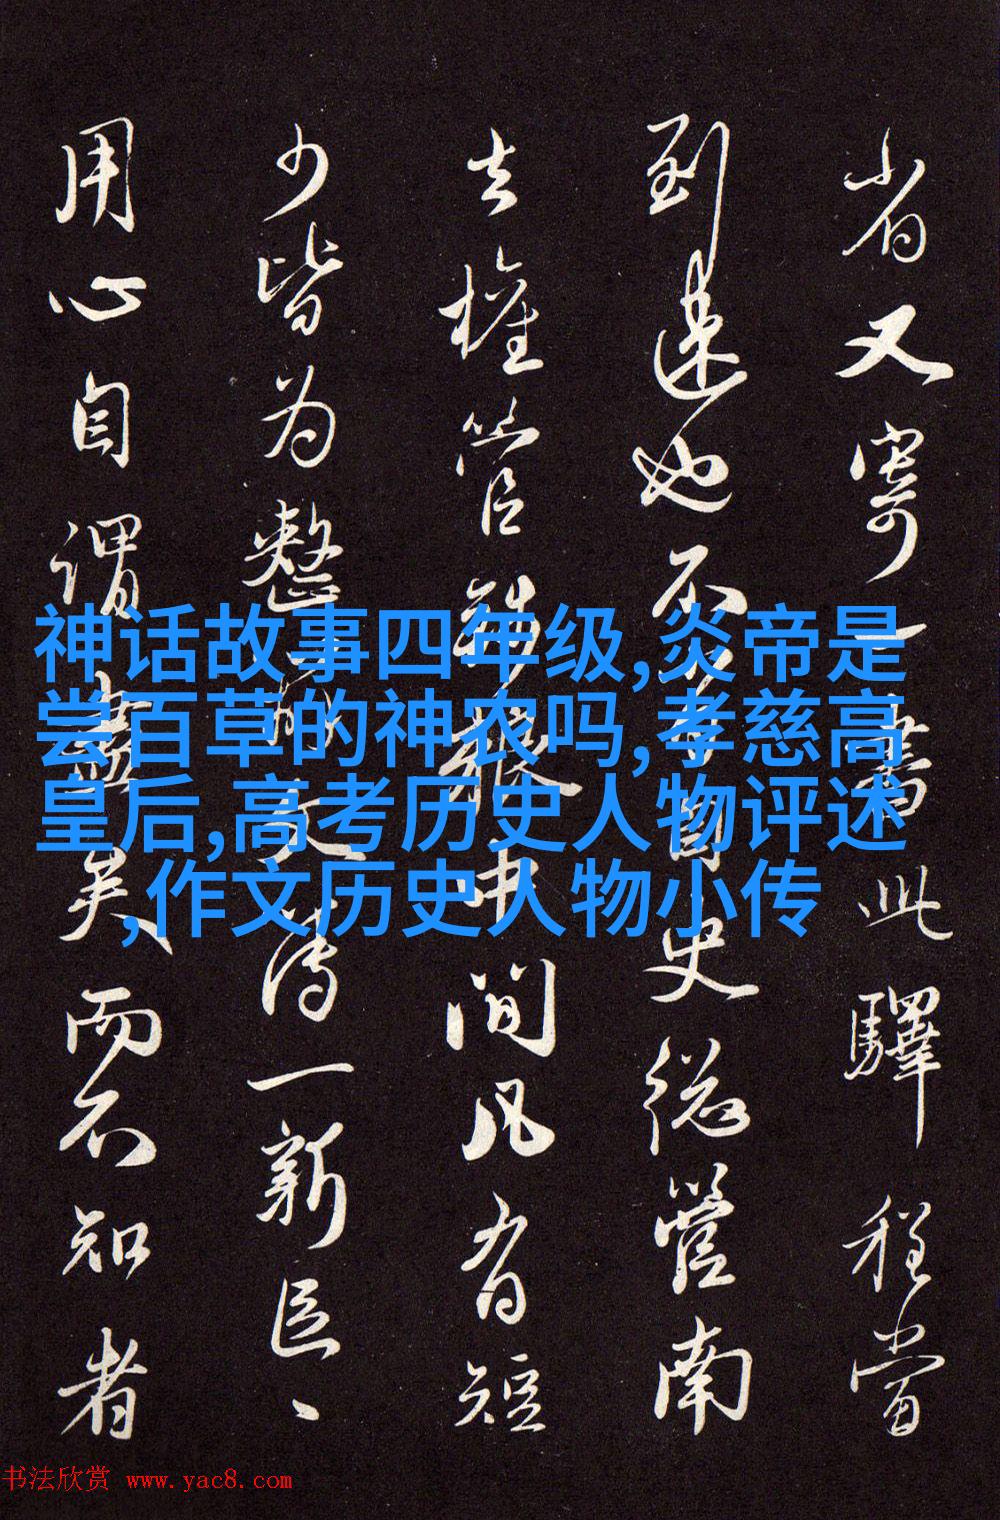 省又寄一書此驛程當
到遠也不
史从䇾南
去權管
中間凡有短
少皆为整
一新臣、、
用心自謂
矣而不知者
神话故事四年级,炎帝是
尝百草的神农吗,孝慈高
皇后,高考历史人物评述
,作文历史人物小传
书法欣赏 www.yac8.com